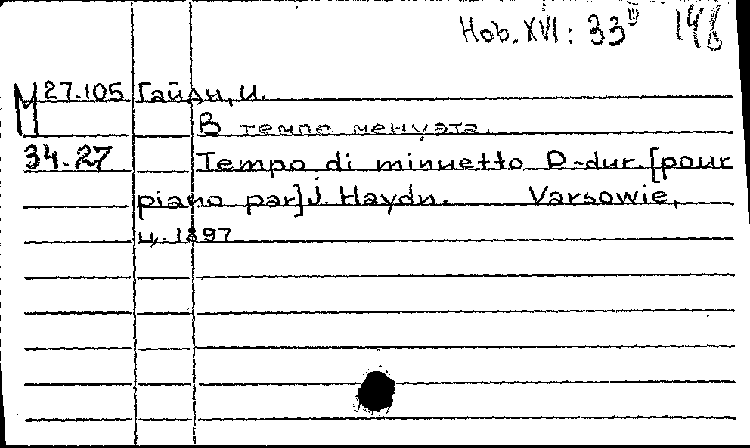 Hob. XVI: 33 III 146
М 27.105 Гайдн, И.
В темпе менуэта.
34-27 Tempo di minuetto D-dur. [pour
piano par] J. Haydn. Varsowie,
ц. 1897